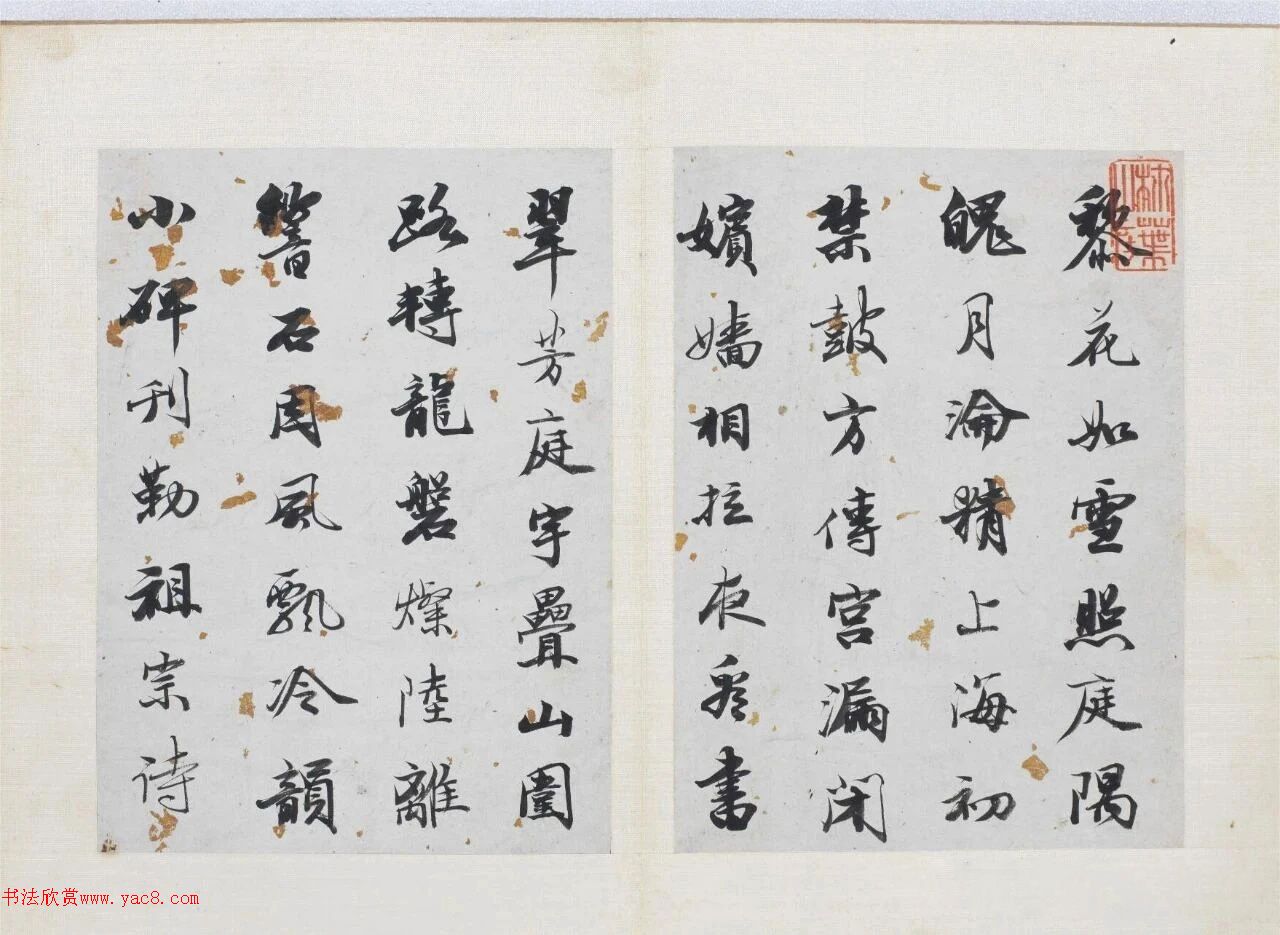 黎花如雪照庭隅
魄月淪精上海初
禁鼓方傳宮漏閉
嬪嬙相拉夜看書
翠芳庭宇疊山圍
路轉龍磐燦陸離
響石因風飄冷韻
小碑刊勒祖宗诗
书法欣赏www.yac8.com